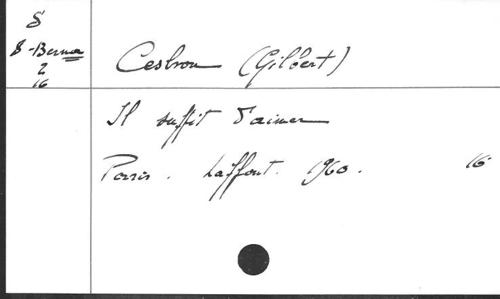 8
8-Berna
2
16
Cesbron (Gilbert)
Il suffit d'aimer
Paris. Laffont. 1960. 16